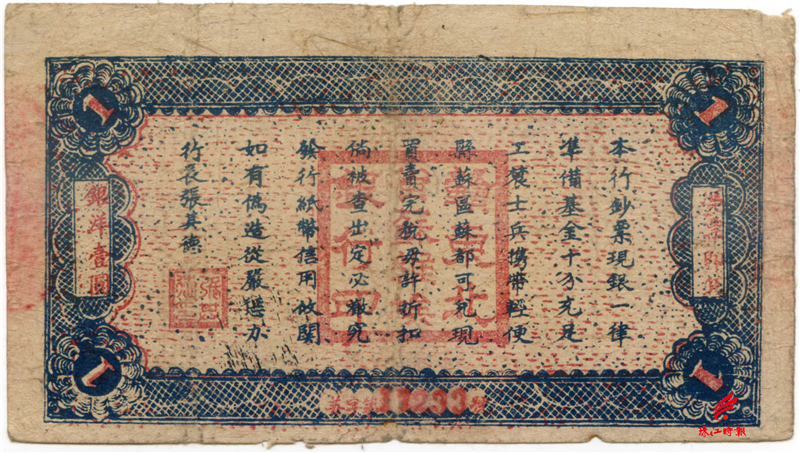 1
1
本行鈔票現銀一律
準備基金十分充足
工農士兵携帶輕便
縣蘇區蘇都可兌現
買賣完稅毋許折扣
倘被查出定必究
發行紙幣信用攸関
如有偽造從嚴懲办
行長張其德
銀洋壹圓
1
1
珠江時報